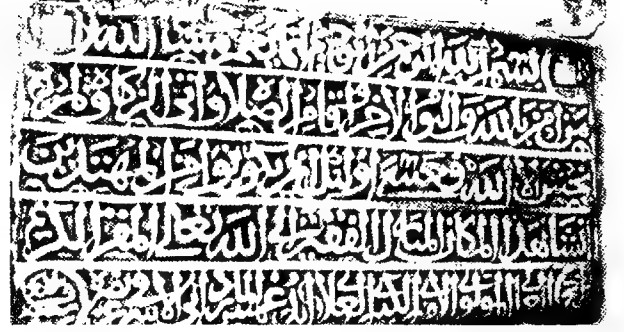 بسم الله الرحمن الرحيم انما يعمر مساجد الله
من امن بالله واليوم الاخر واقام الصلاة واتى الزكاة ولم
يخش الا الله فعسى اولئك ان يكونوا من المهتدين
انشا هذا المكان المبارك الفقير الى الله تعالى المقر الكريم
العالي المولوي الكبيري العلاي